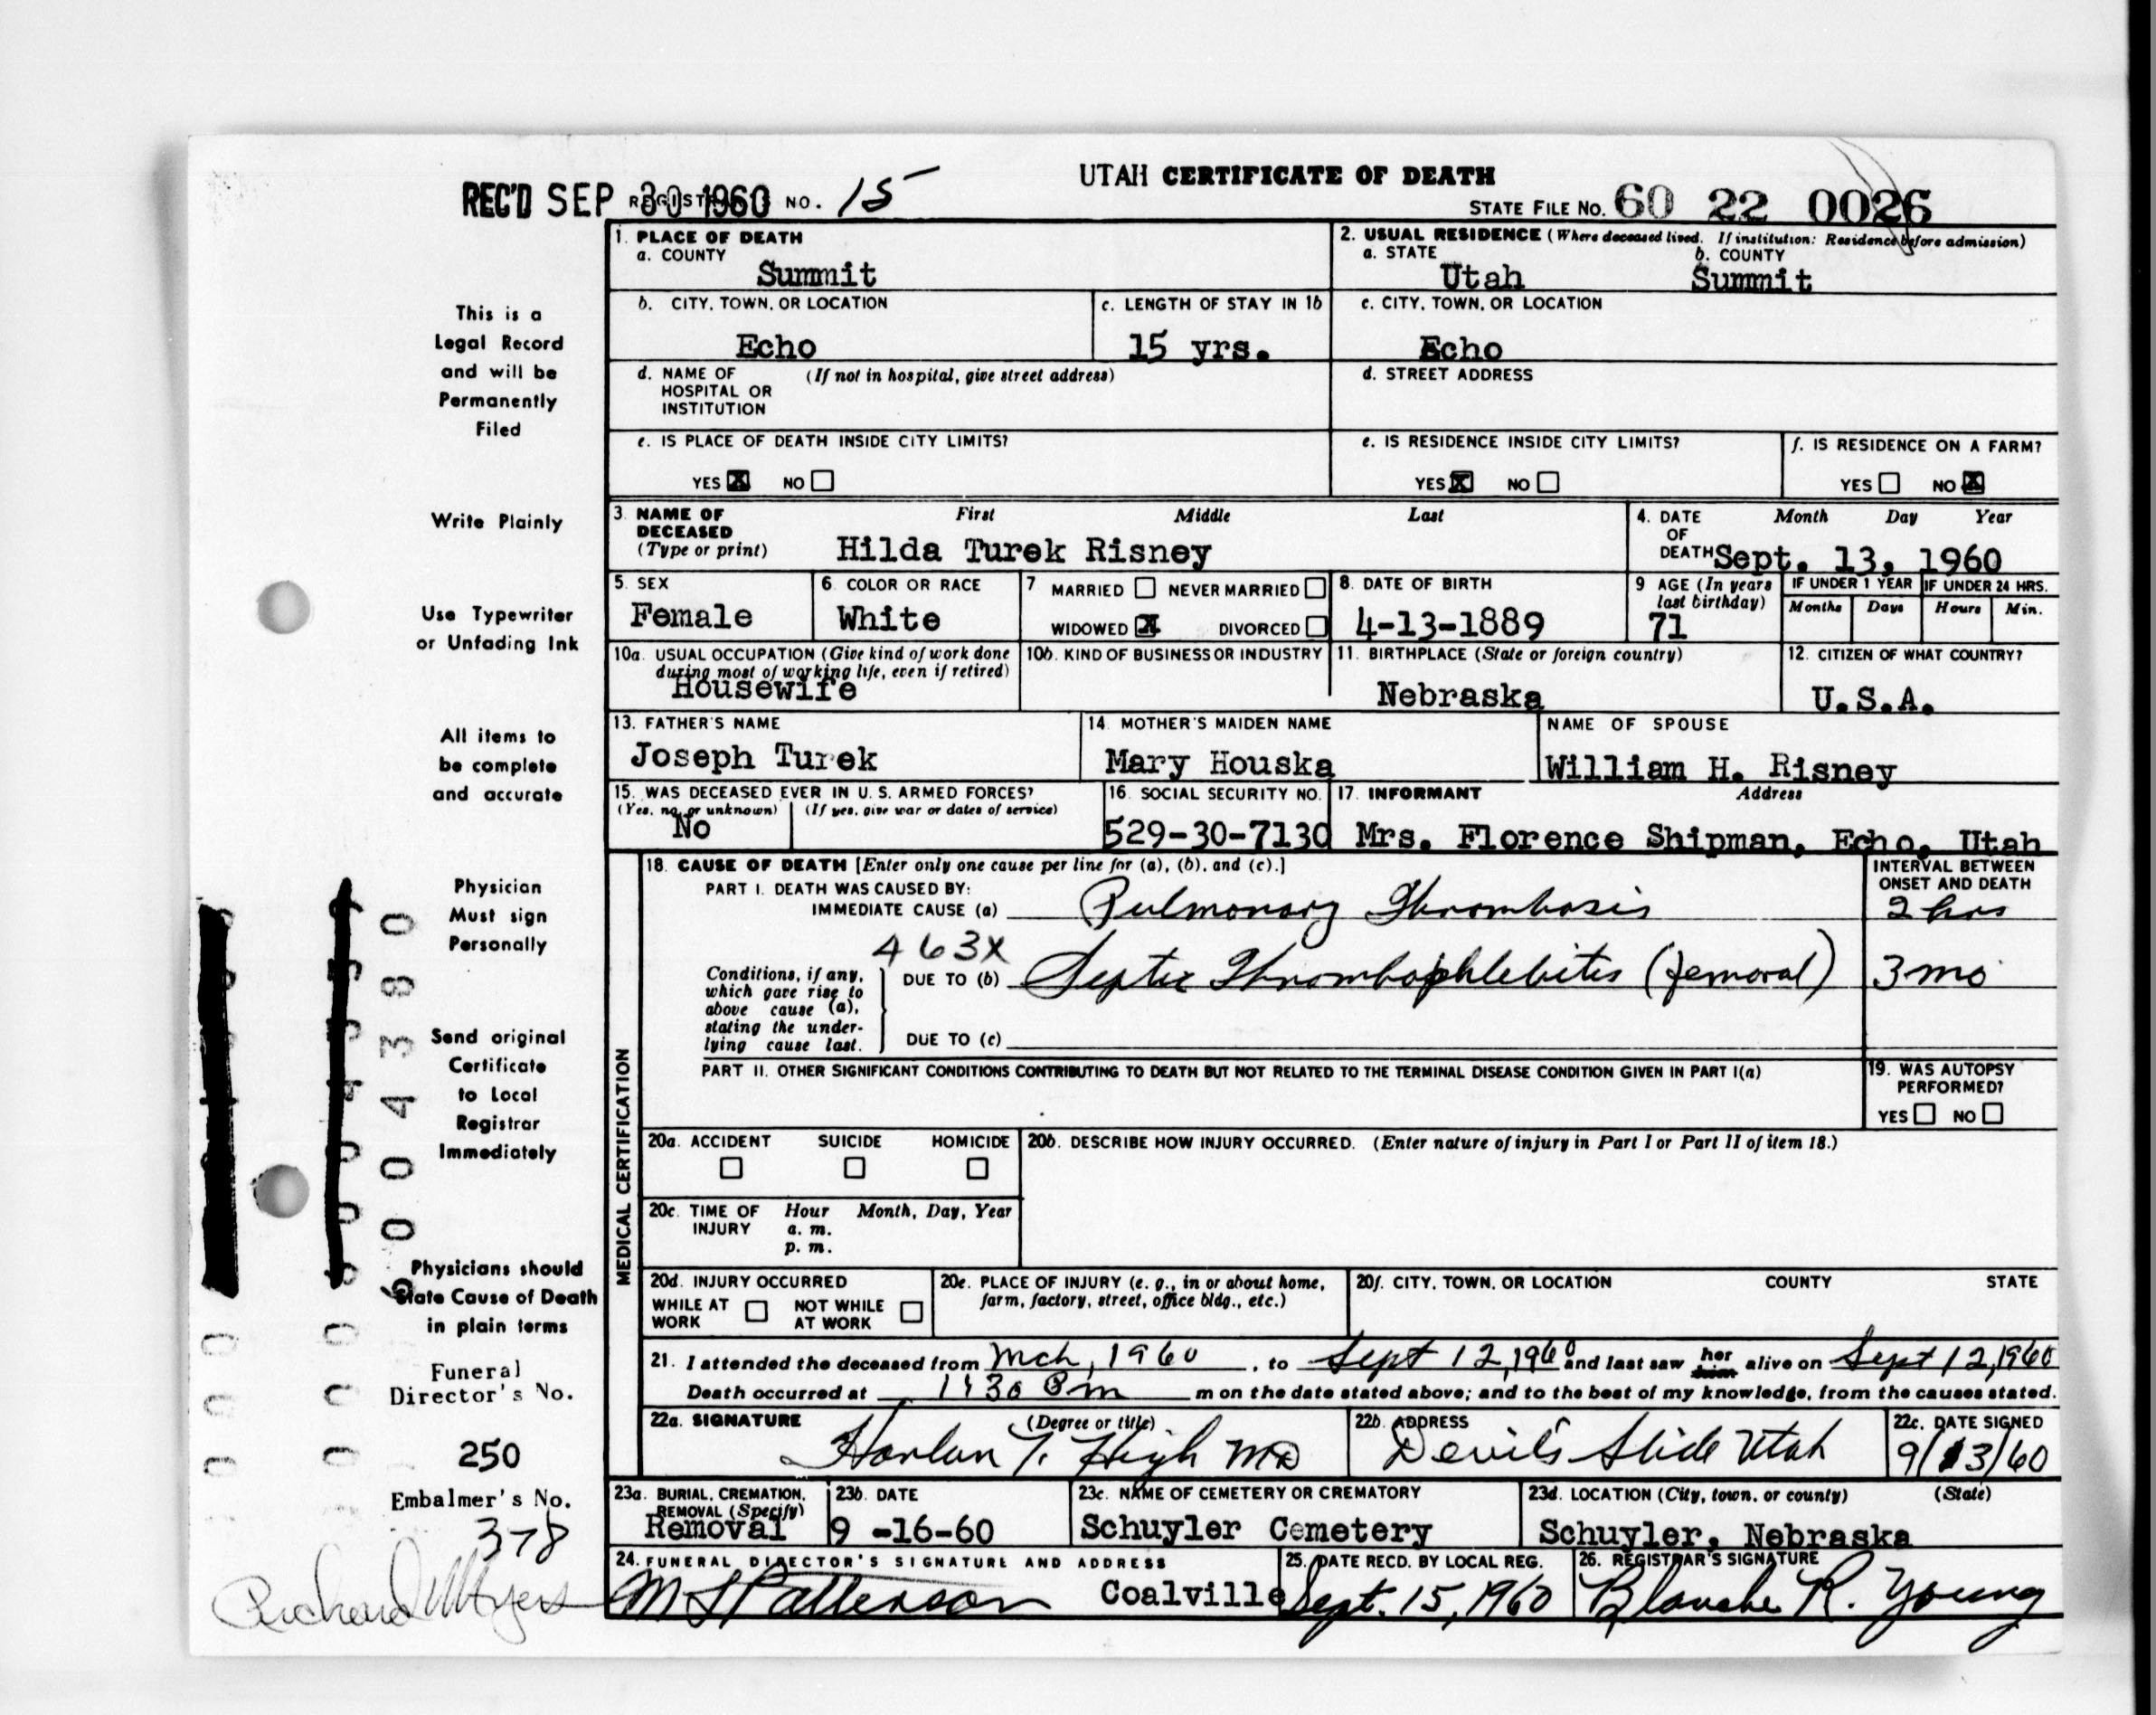 UTAH CERTIFICATE OF DEATH
REC'D SEP 30 1960 NO. 15
STATE FILE NO. 60 22 0026
1. PLACE OF DEATH
a. COUNTY
Summit
2. USUAL RESIDENCE (Where deceased lived. If institution: Residence before admission)
a. STATE b. COUNTY
Utah Summit
b. CITY, TOWN, OR LOCATION
Echo
c. LENGTH OF STAY IN 1b
15 yrs.
c. CITY, TOWN, OR LOCATION
Echo
d. NAME OF HOSPITAL OR INSTITUTION (If not in hospital, give street address)
d. STREET ADDRESS
e. IS PLACE OF DEATH INSIDE CITY LIMITS?
YES X NO
e. IS RESIDENCE INSIDE CITY LIMITS?
YES X NO
f. IS RESIDENCE ON A FARM?
YES NO X
3. NAME OF DECEASED (Type or print) First Middle Last
Hilda Turek Risney
4. DATE OF DEATH Month Day Year
Sept. 13, 1960
5. SEX
Female
6. COLOR OR RACE
White
7 MARRIED NEVER MARRIED
WIDOWED X DIVORCED
8. DATE OF BIRTH
4-13-1889
9 AGE (In years last birthday)
71
IF UNDER 1 YEAR IF UNDER 24 HRS.
Months Days Hours Min.
10a. USUAL OCCUPATION (Give kind of work done during most of working life, even if retired)
Housewife
10b. KIND OF BUSINESS OR INDUSTRY
11. BIRTHPLACE (State or foreign country)
Nebraska
12. CITIZEN OF WHAT COUNTRY?
U.S.A.
13. FATHER'S NAME
Joseph Turek
14. MOTHER'S MAIDEN NAME
Mary Houska
NAME OF SPOUSE
William H. Risney
15. WAS DECEASED EVER IN U. S. ARMED FORCES?
(Yes, no, or unknown) (If yes, give war or dates of service)
No
16. SOCIAL SECURITY NO.
529-30-7130
17. INFORMANT Address
Mrs. Florence Shipman, Echo, Utah
MEDICAL CERTIFICATION
18. CAUSE OF DEATH [Enter only one cause per line for (a), (b), and (c).]
PART I. DEATH WAS CAUSED BY:
IMMEDIATE CAUSE (a) Pulmonary Thrombosis
INTERVAL BETWEEN ONSET AND DEATH
2 hrs
463X
Conditions, if any, which gave rise to above cause (a), stating the underlying cause last.
DUE TO (b) Septic Thrombophlebitis (femoral)
3 mo
DUE TO (c)
PART II. OTHER SIGNIFICANT CONDITIONS CONTRIBUTING TO DEATH BUT NOT RELATED TO THE TERMINAL DISEASE CONDITION GIVEN IN PART I(a)
19. WAS AUTOPSY PERFORMED?
YES NO
20a. ACCIDENT SUICIDE HOMICIDE
20b. DESCRIBE HOW INJURY OCCURRED. (Enter nature of injury in Part I or Part II of item 18.)
20c. TIME OF INJURY Hour Month, Day, Year
a. m.
p. m.
20d. INJURY OCCURRED
WHILE AT WORK NOT WHILE AT WORK
20e. PLACE OF INJURY (e. g., in or about home, farm, factory, street, office bldg., etc.)
20f. CITY, TOWN, OR LOCATION COUNTY STATE
21. I attended the deceased from Mch, 1960, to Sept 12, 1960 and last saw her him alive on Sept 12, 1960
Death occurred at m on the date stated above; and to the best of my knowledge, from the causes stated.
22a. SIGNATURE (Degree or title)
Harlan T. High MD
22b. ADDRESS
Devil's Slide Utah
22c. DATE SIGNED
9/13/60
23a. BURIAL, CREMATION, REMOVAL (Specify)
Removal
23b. DATE
9 -16-60
23c. NAME OF CEMETERY OR CREMATORY
Schuyler Cemetery
23d. LOCATION (City, town, or county) (State)
Schuyler, Nebraska
24. FUNERAL DIRECTOR'S SIGNATURE AND ADDRESS
Patterson Coalville
25. DATE RECD. BY LOCAL REG.
Sept. 15, 1960
26. REGISTRAR'S SIGNATURE
Blanche R. Young
This is a
Legal Record
and will be
Permanently
Filed
Write Plainly
Use Typewriter
or Unfading Ink
All items to
be complete
and accurate
Physician
Must sign
Personally
Send original
Certificate
to Local
Registrar
Immediately
Physicians should
State Cause of Death
in plain terms
Funeral
Director's No.
250
Embalmer's No.
378
Richard Myers
6004380